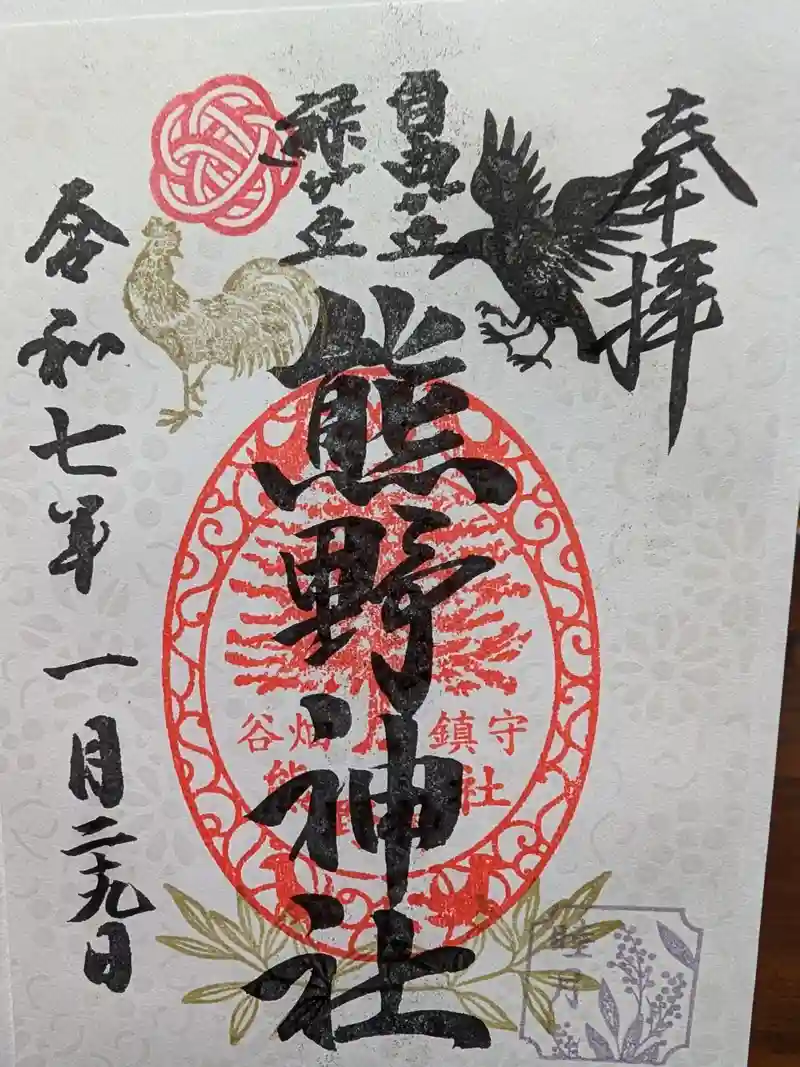 奉拝
自由が丘
緑が丘
熊野神社
令和七年一月二十九日
谷畑鎮守
熊野神社
睦月詣